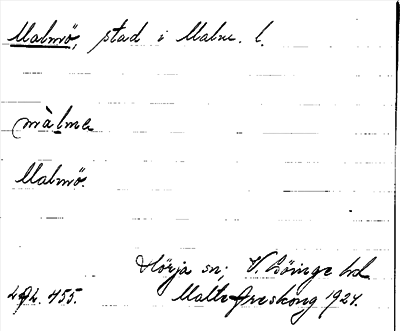 Malmö, stad i Malm. l.
màlmɐ
Malmö.
Hörja sn; V. Göinge hd
Malte Areskoug 1924.
455.